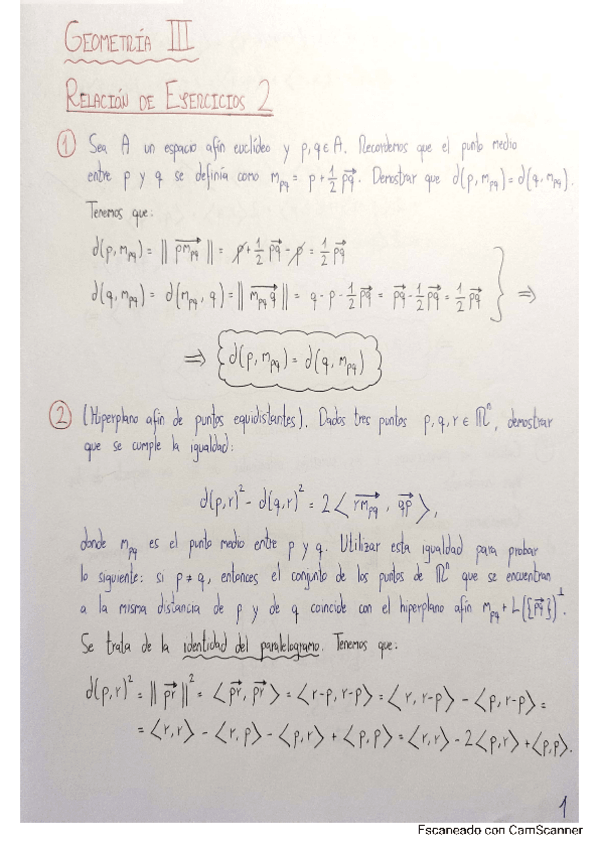 GEOMETRÍA III
RELACIÓN DE EJERCICIOS 2
① Sea A un espacio afín euclídeo y p,q ∈ A. Recordemos que el punto medio
entre p y q se definía como m_pq = p + 1/2 pq⃗. Demostrar que d(p, m_pq) = d(q, m_pq).
Tenemos que:
d(p, m_pq) = || pm_pq⃗ || = p + 1/2 pq⃗ - p = 1/2 pq⃗
d(q, m_pq) = d(m_pq, q) = || m_pq q⃗ || = q - p - 1/2 pq⃗ = pq⃗ - 1/2 pq⃗ = 1/2 pq⃗ } ⇒
⇒ d(p, m_pq) = d(q, m_pq)
② (Hiperplano afín de puntos equidistantes). Dados tres puntos p, q, r ∈ ℝⁿ, demostrar
que se cumple la igualdad:
d(p,r)² - d(q,r)² = 2 ⟨ rm_pq⃗, qp⃗ ⟩,
donde m_pq es el punto medio entre p y q. Utilizar esta igualdad para probar
lo siguiente: si p ≠ q, entonces el conjunto de los puntos de ℝⁿ que se encuentran
a la misma distancia de p y de q coincide con el hiperplano afín m_pq + L({pq⃗})^⊥.
Se trata de la identidad del paralelogramo. Tenemos que:
d(p,r)² = || pr⃗ ||² = ⟨ pr⃗, pr⃗ ⟩ = ⟨ r-p, r-p ⟩ = ⟨ r, r-p ⟩ - ⟨ p, r-p ⟩ =
= ⟨ r, r ⟩ - ⟨ r, p ⟩ - ⟨ p, r ⟩ + ⟨ p, p ⟩ = ⟨ r, r ⟩ - 2 ⟨ p, r ⟩ + ⟨ p, p ⟩.
1
Escaneado con CamScanner